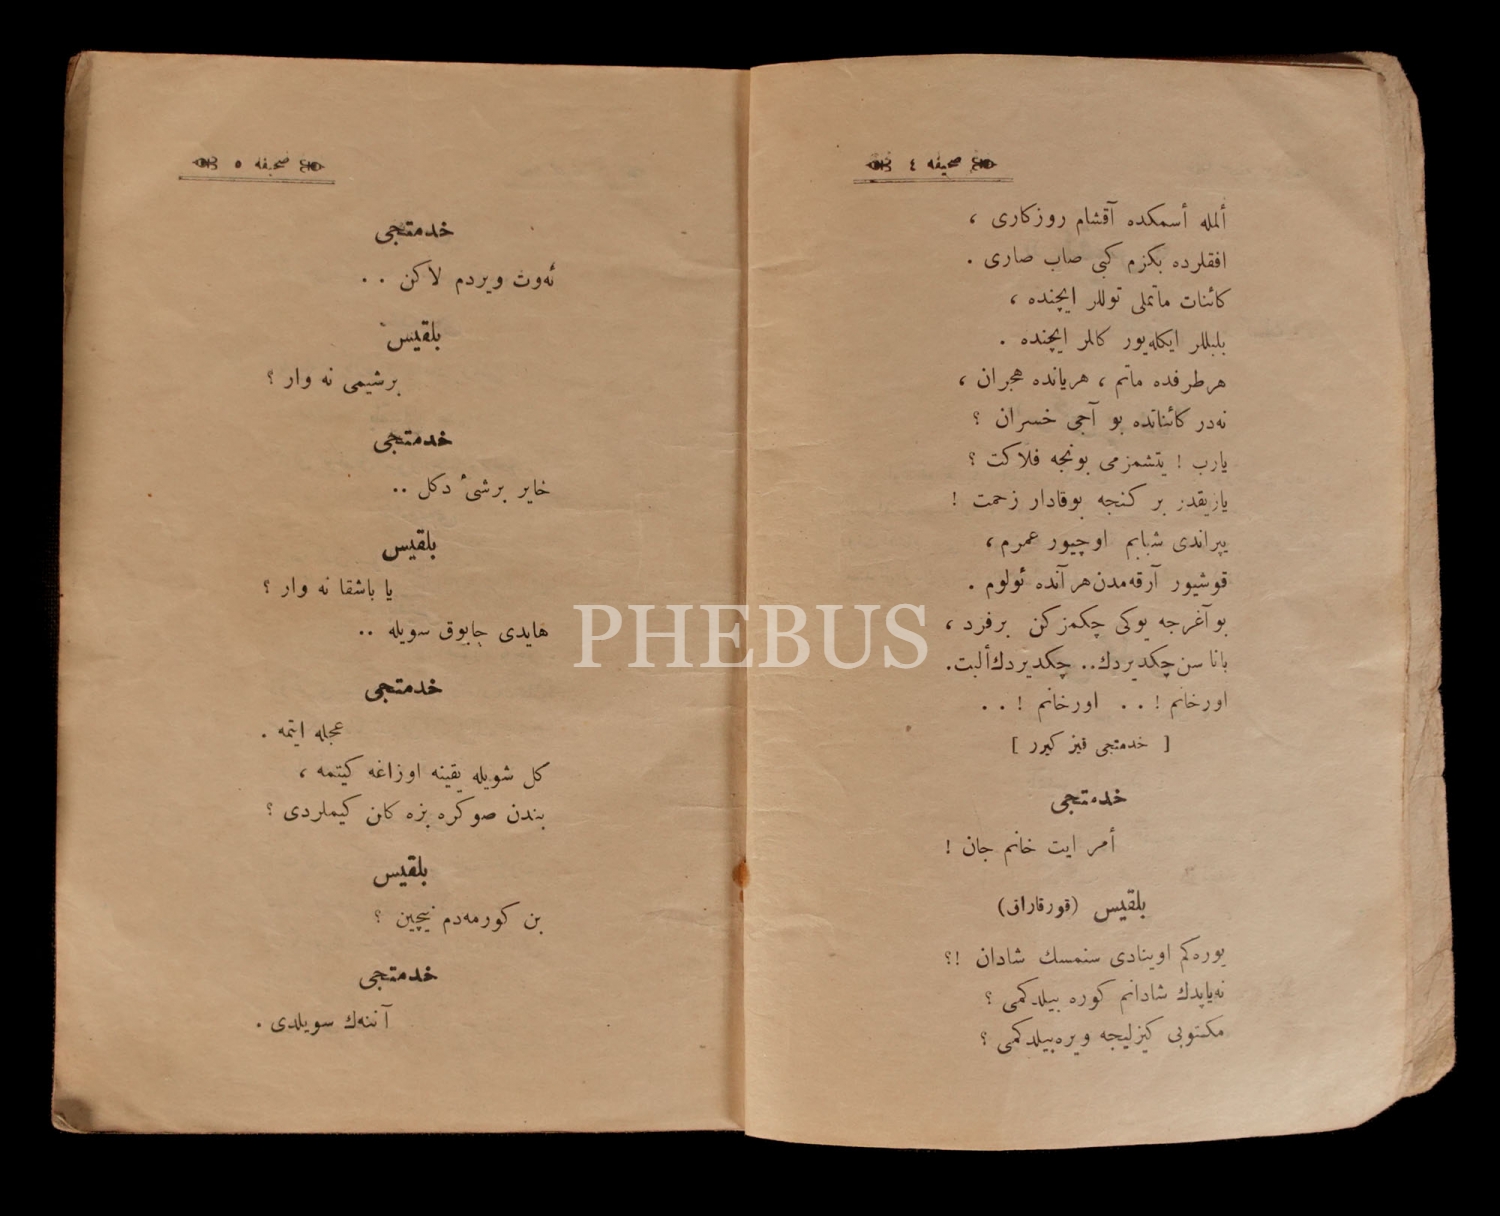 صحیفه ٤
ألمله أسمكده آقشام روزكاری ،
افقلرده بكزم كبی صاب صاری .
كائنات ماتملی توللر ایچنده ،
بلبللر ایكله‌یور كاللر ایچنده .
هرطرفده ماتم ، هریانده هجران ،
نه‌در كائناتده بو آجی خسران ؟
یارب ! یتشمزمی بونجه فلاكت ؟
یازیقدر بر كنجه بوقادار زحمت !
یپراندی شبابم اوچیور عمرم ،
قوشیور آرقه‌مدن هر آنده ئولوم .
بو آغرجه یوكی چكمزكن برفرد ،
بانا سن چكدیردك.. چكدیردك ألبت.
اورخانم ! . . اورخانم ! . .
[ خدمتجی قیز كیرر ]
خدمتجی
أمر ایت خانم جان !
بلقیس (قورقاراق)
یوره‌كم اوینادی سنمسك شادان !؟
نه‌یاپدك شادانم كوره بیلدكمی ؟
مكتوبی كیزلیجه ویره‌بیلدكمی ؟
صحیفه ٥
خدمتجی
ئه‌وت ویردم لاكن . .
بلقیس
برشیمی نه وار ؟
خدمتجی
خایر برشیء دكل ..
بلقیس
یا باشقا نه وار ؟
هایدی چابوق سویله ..
خدمتجی
عجله ایتمه .
كل شویله یقینه اوزاغه كیتمه ،
بندن صوكره بزه كان كیملردی ؟
بلقیس
بن كورمه‌دم نیچین ؟
خدمتجی
آننه‌ك سویلدی .
PHEBUS